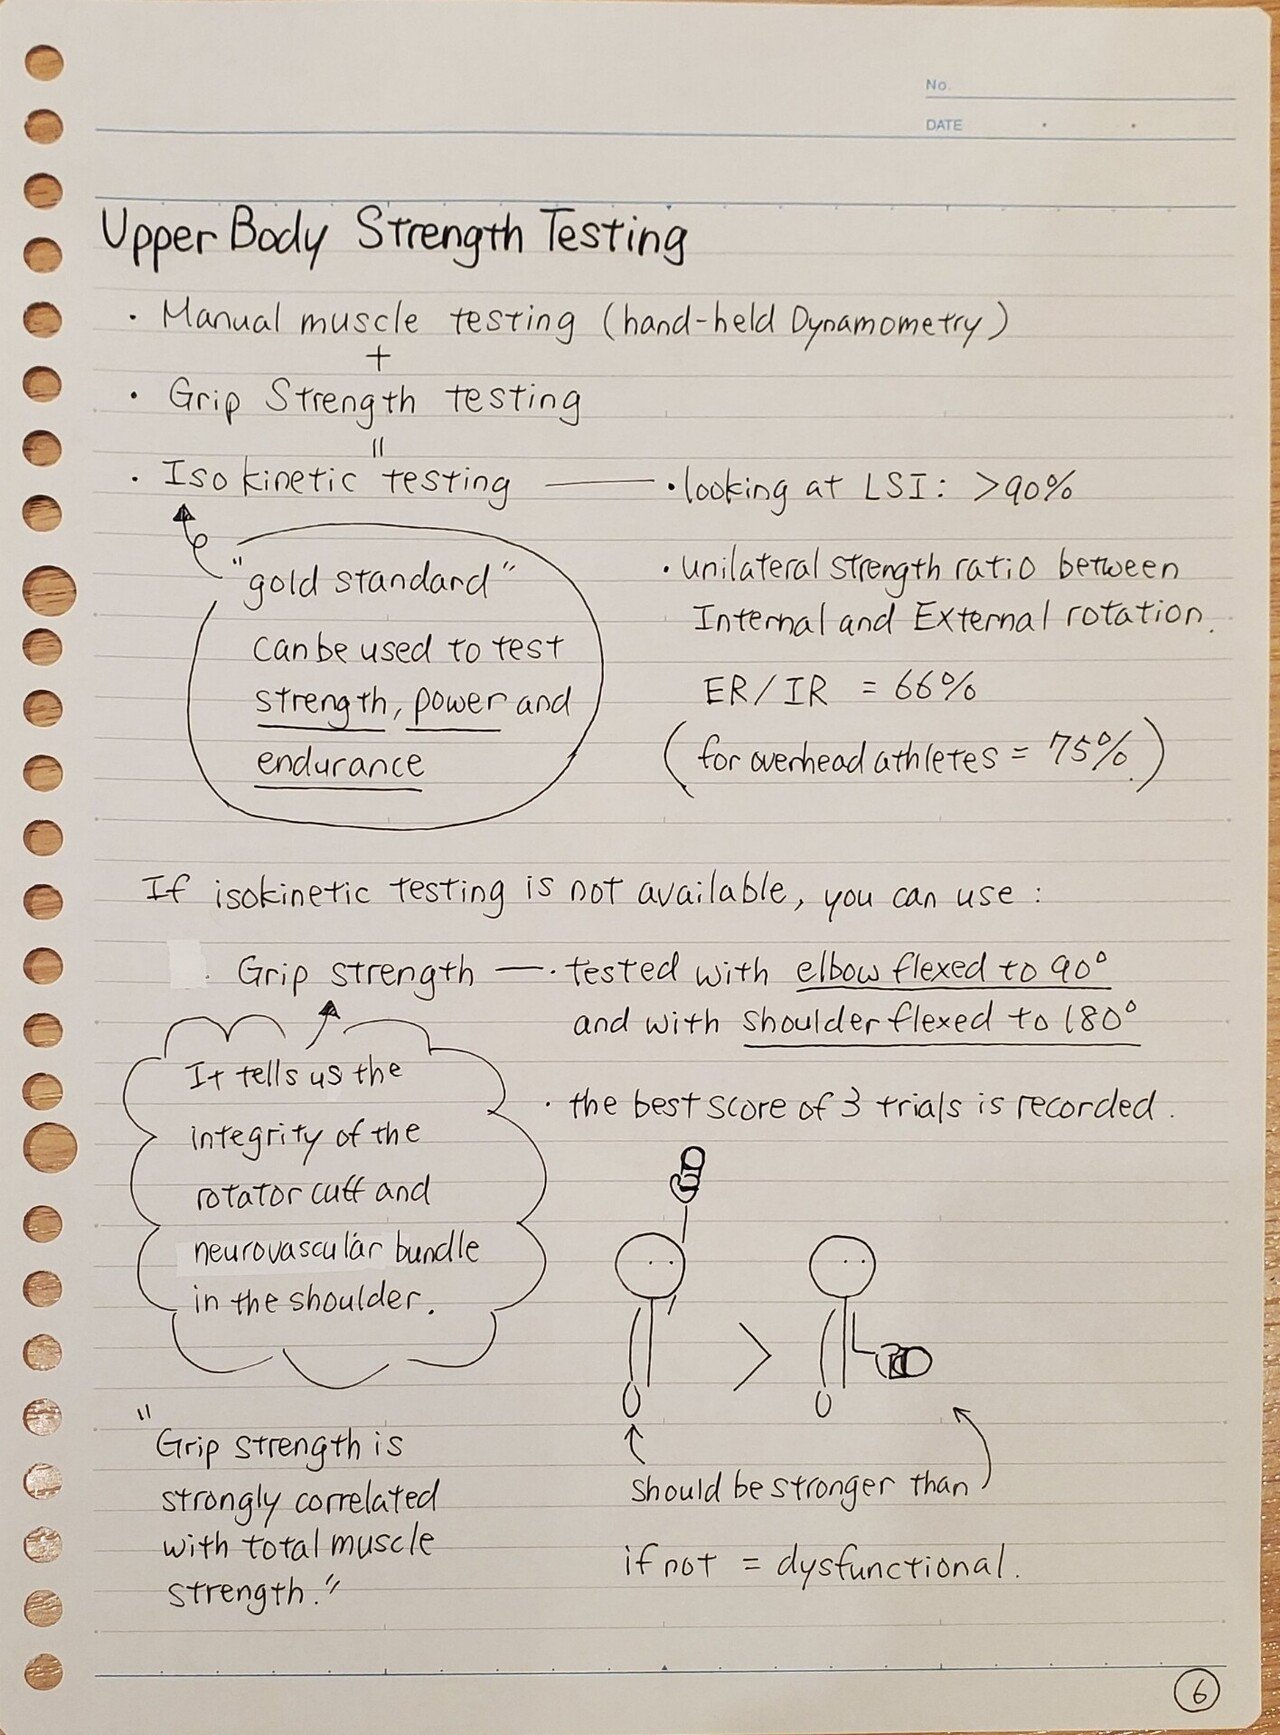 No.
DATE
Upper Body Strength Testing
· Manual muscle testing (hand-held Dynamometry)
+
· Grip Strength testing
=
· Isokinetic testing — · looking at LSI: >90%
"gold standard"
can be used to test
strength, power and
endurance
· unilateral strength ratio between
Internal and External rotation.
ER/IR = 66%
(for overhead athletes = 75%.)
If isokinetic testing is not available, you can use:
· Grip strength — · tested with elbow flexed to 90°
and with shoulder flexed to 180°
· the best score of 3 trials is recorded.
It tells us the
integrity of the
rotator cuff and
neurovascular bundle
in the shoulder.
>
should be stronger than
if not = dysfunctional.
"Grip strength is
strongly correlated
with total muscle
strength."
6